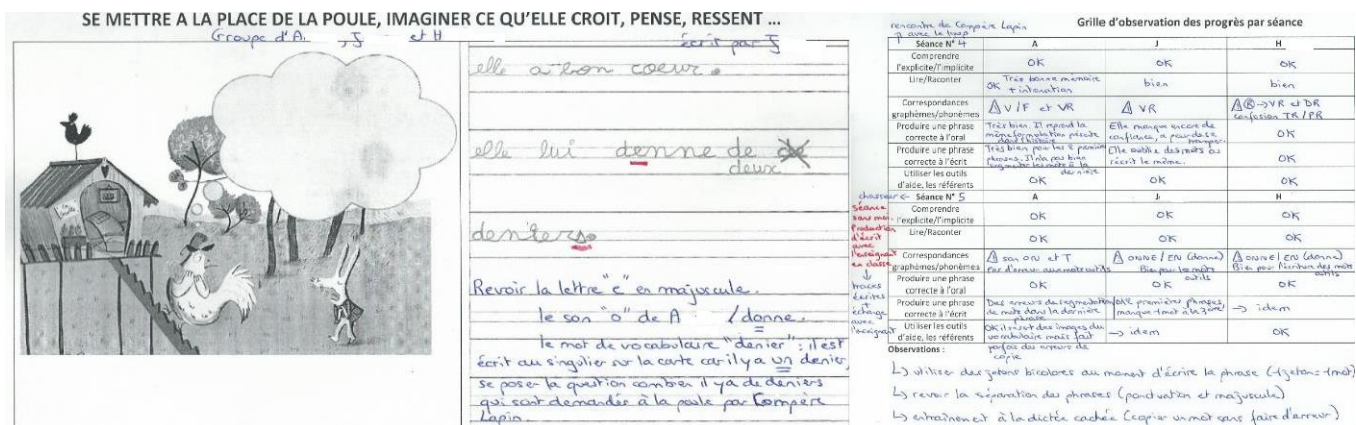 SE METTRE A LA PLACE DE LA POULE, IMAGINER CE QU'ELLE CROIT, PENSE, RESSENT ...
Groupe d'A. , J et H
écrit par J
elle a bon coeur.
elle lui denne de
deux
deniers.
Revoir la lettre "e" en majuscule.
le son "o" de A /donne.
le mot de vocabulaire "denier" : il est
écrit au singulier sur la carte car il y a un denier,
se poser la question combien il y a de deniers
qui sont demandés à la poule par Compère
Lapin.
rencontre de Compère Lapin
avec le loup
Grille d'observation des progrès par séance
Séance N° 4 A J H
Comprendre l'explicite/l'implicite OK OK OK
Lire/Raconter OK Très bonne mémoire + intonation bien bien
Correspondances graphèmes/phonèmes V/F et VR VR VR et DR confusion TR/PR
Produire une phrase correcte à l'oral Très bien. Il reprend la même formulation précise dans l'histoire Elle manque encore de confiance, a peur de se tromper. OK
Produire une phrase correcte à l'écrit Très bien pour les 2 premières phrases. Il n'a pas bien segmenter les mots à la dernière Elle oublie des mots ou récrit le même. OK
Utiliser les outils d'aide, les référents OK OK OK
chasseur ← Séance N° 5 A J H
Séance sans moi. Production d'écrit avec l'enseignant en classe
↓ traces écrites + échange avec l'enseignant
Comprendre l'explicite/l'implicite OK OK OK
Lire/Raconter OK OK OK
Correspondances graphèmes/phonèmes son ON et T Pas d'erreur aux mots outils ONNE/EN (donne) Bien pour les mots outils ONNE/EN (donne) Bien pour l'écriture des mots outils
Produire une phrase correcte à l'oral OK OK OK
Produire une phrase correcte à l'écrit Des erreurs de segmentation de mots dans la dernière phrase OK 2 premières phrases, manque 1 mot à la 3ème → idem
Utiliser les outils d'aide, les référents OK il se sert des images du vocabulaire mais fait parfois des erreurs de copie → idem OK
Observations :
↳ utiliser des jetons bicolores au moment d'écrire la phrase (1 jeton = 1 mot)
↳ revoir la séparation des phrases (ponctuation et majuscule)
↳ entraînement à la dictée cachée (copier un mot sans faire d'erreur)